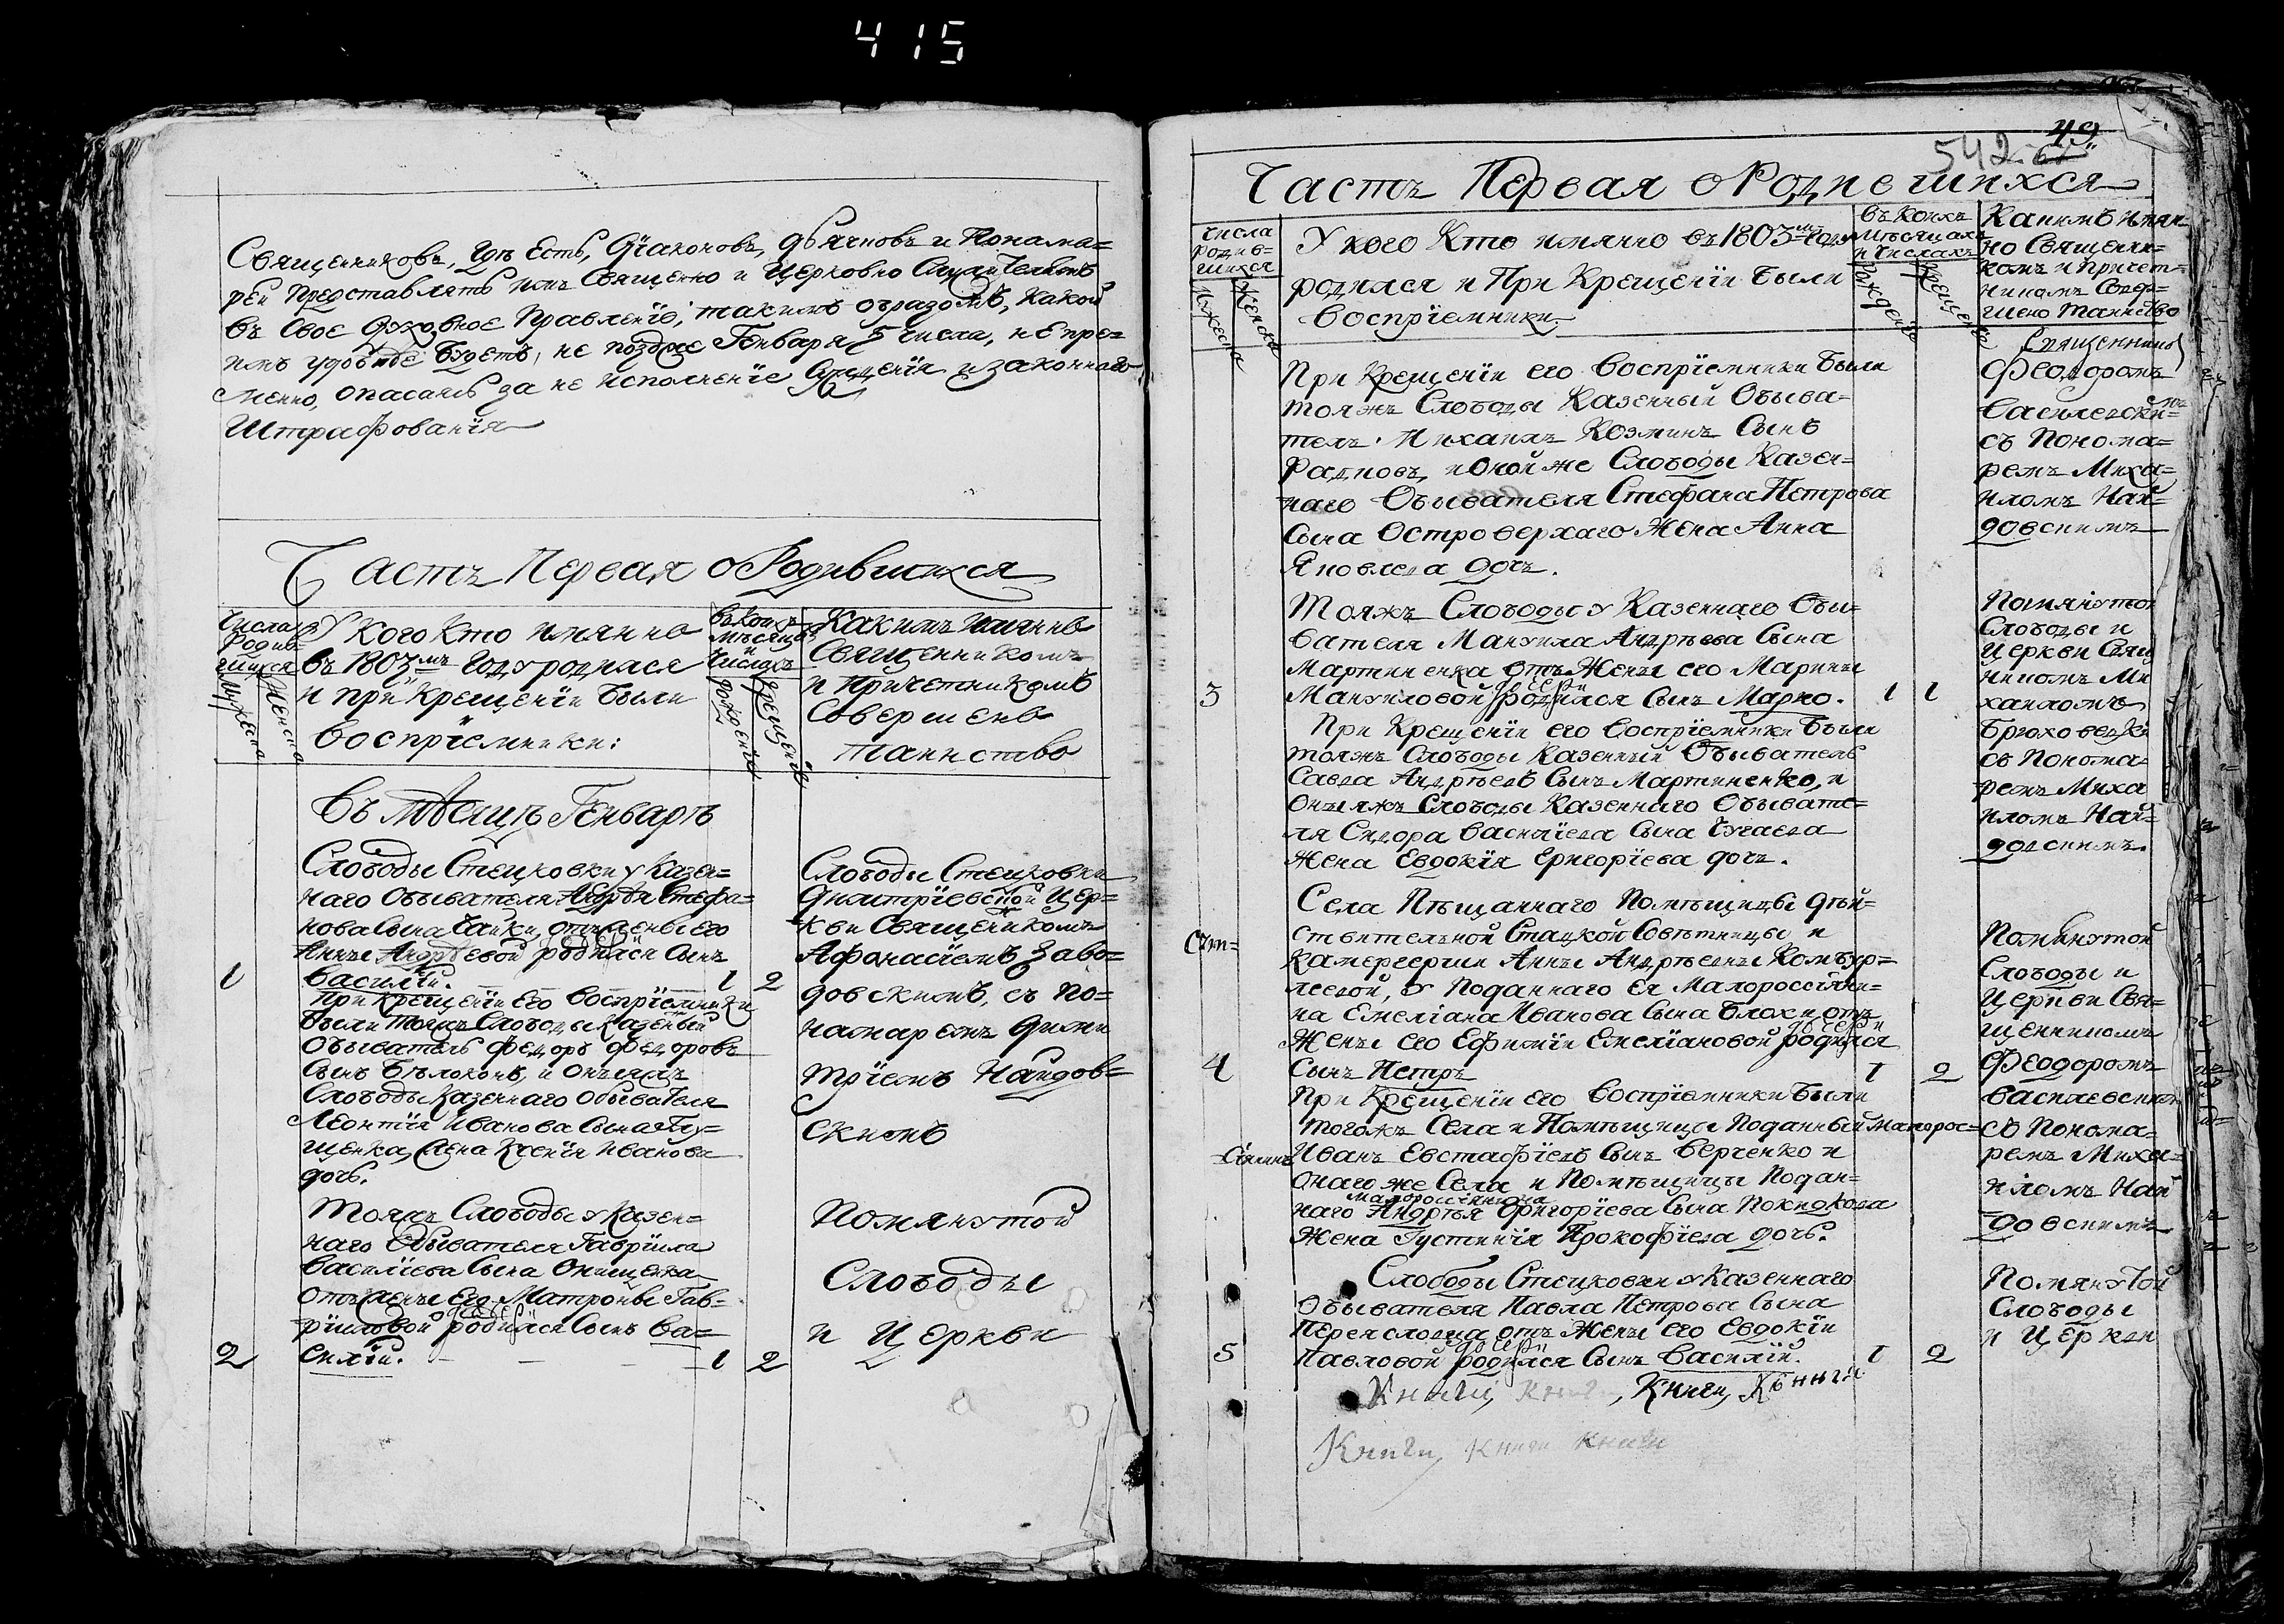 415
Священниковъ, гдѣ Есть, Діаконовъ, дьячковъ и Понама=
рей Представлять имъ Священно и Церковно Служителямъ
въ Свое Духовное Правленіе, такимъ образомъ, какой
имъ удобнѣе будетъ, не позднѣе Генваря 5 числа, непре=
менно, опасаясь за не исполненіе Сужденія и законнаго
Штрафованія
Часть Первая о Родившихся
Числа Родив=
шихся
Мужеска
Женска
У кого Кто имянно
въ 1803мъ Году родился
и при Крещеніи были
воспріемники:
въ Коихъ
мѣсяцахъ
и
Числахъ
рожденіе
крещеніе
Какимъ имянно
Священникомъ
и Причетникомъ
Совершено
таинство
Въ мѣсяцѣ Генварѣ
Слободы Стецковки у Казен=
наго Обывателя Андрѣя Стефа=
нова Сына Чайки, отъ жены его
Анны Андрѣевой родился Сынъ
1 Василій. 1 2
При Крещеніи Его воспріемники
были тояжъ Слободы Казенный
Обыватель Федоръ Федоровъ
Сынъ Бѣлоконь, и онъяжъ
Слободы Казеннаго Обывателя
Леонтія Иванова Сына
щенка, жена Ксенія Иванова
дочь.
Слободы Стецковки
Димитріевской Цер=
кви Священникомъ
Афанасіемъ Заво=
довскимъ, съ По=
намаремъ Дими
тріемъ Найдов=
скимъ
Тояжъ Слободы у Казен=
наго Обывателя Гавріила
Василіева Сына Онищенка
отъ жены Его Матроны Гав=
ріиловой родился Сынъ Ва=
2 силій. 1 2
Помянутой
Слободы
и Церкви
49
542
Часть Первая о Родившихся
Числа
Родив=
шихся
Мужеска
Женска
У кого Кто имянно въ 1803мъ Году
родился и При Крещеніи были
воспріемники.
въ Коихъ
Мѣсяцахъ
и Числахъ
Рожденіе
Крещеніе
Какимъ имян=
но Священни=
комъ и Причет=
никомъ Совер=
шено таинство
При Крещеніи его воспріемники были
тояжъ Слободы Казенный Обыва=
тель Михаилъ Козминъ Сынъ
Радковъ, и оной же Слободы Казен=
наго Обывателя Стефана Петрова
Сына Островерхаго Жена Анна
Яковлева дочь.
Священникъ
Феодоромъ
Василевски=
съ Понома=
ремъ Миха=
иломъ Най=
довскимъ
Тояжъ Слободы у Казеннаго Обы=
вателя Мануила Андрѣева Сына
Мартиненка отъ Жены его Марины
3 Мануиловой родился Сынъ Марко. 1 1
При Крещеніи его воспріемники были
тояжъ Слободы Казенный Обыватель
Савва Андрѣевъ Сынъ Мартиненко, и
Онъяжъ Слободы Казеннаго Обывате=
ля Сидора Василіева Сына Чугаева
Жена Евдокія Григоріева дочь.
Помянутой
Слободы и
Церкви Свящ
никомъ Ми
хаиломъ
Брюховецки
съ Понома=
ремъ Миха
иломъ Най
довскимъ.
Села Пѣщаннаго Помѣщицы дѣй=
ствительной Статской Совѣтницы и
Камергерши Анны Андрѣевны Комбур=
леевой, у Поданнаго Ея Малороссіяни=
на Емеліана Иванова Сына Блохи отъ
Жены его Ефиміи Емеліановой родился
4 Сынъ Петръ 1 2
При Крещеніи его воспріемники были
тогожъ Села и Помѣщицы Поданный малорос=
сіянинъ Иванъ Евстафіевъ Сынъ Верченко и
онаго же Села и Помѣщицы Подан=
малороссіянина
наго Андрѣя Григоріева Сына Покидкова
Жена Густинія Прокофіева дочь.
Помянутой
Слободы и
Церкви Свя=
щенникомъ
Феодоромъ
Василевским
съ Понома=
ремъ Миха=
иломъ Най
довскимъ
Слободы Стецковки у Казеннаго
Обывателя Павла Петрова Сына
Переясловца отъ Жены его Евдокіи
5 Павловой родился Сынъ Василій. 1 2
Помянутой
Слободы
и Церкви
Книги, Книги, Книги, Книги
Книги, Книги книги